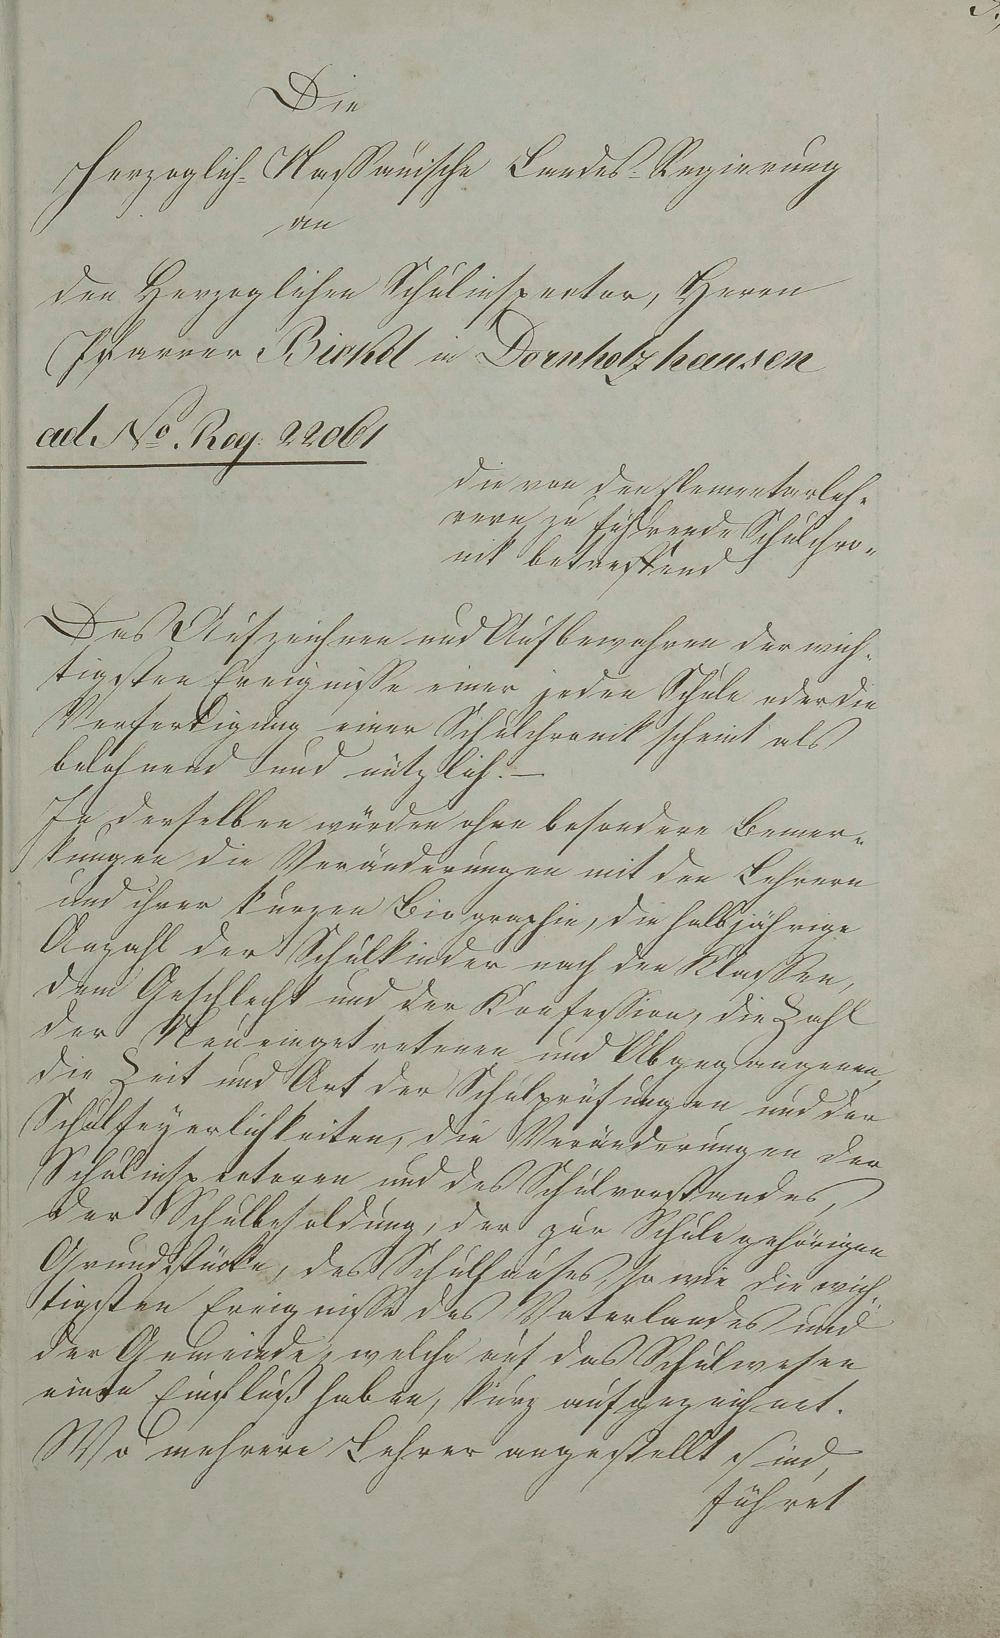 Die
Herzoglich-Nassauische Landes-Regierung
an
den Herzoglichen Schulinspector, Herrn
Pfarrer Bickel in Dornholzhausen
ad No. Reg. 22061
die von den Elementarleh-
rern zu führende Schulchro-
nik betreffend
Das Aufzeichnen und Aufbewahren der wich-
tigsten Ereignisse einer jeden Schule oder die
Verfertigung einer Schulchronik scheint als
belohnend und nützlich. —
In derselben würden ohne besondere Bemer-
kungen die Veränderungen mit den Lehrern
und ihrer kurzen Biographie, die halbjährige
Anzahl der Schulkinder nach den Klassen,
dem Geschlecht und der Konfession, die Zahl
der Neueingetretenen und Abgegangenen,
die Zeit und Art der Schulprüfungen und der
Schulfeyerlichkeiten, die Veränderungen der
Schulinspectoren und des Schulvorstandes,
der Schulbesoldung, der zur Schule gehörigen
Grundstücke, des Schulhauses, so wie die wich-
tigsten Ereignisse des Vaterlandes und
der Gemeinde, welche auf das Schulwesen
einen Einfluß haben, kurz aufgezeichnet.
Wo mehrere Lehrer angestellt sind,
führet